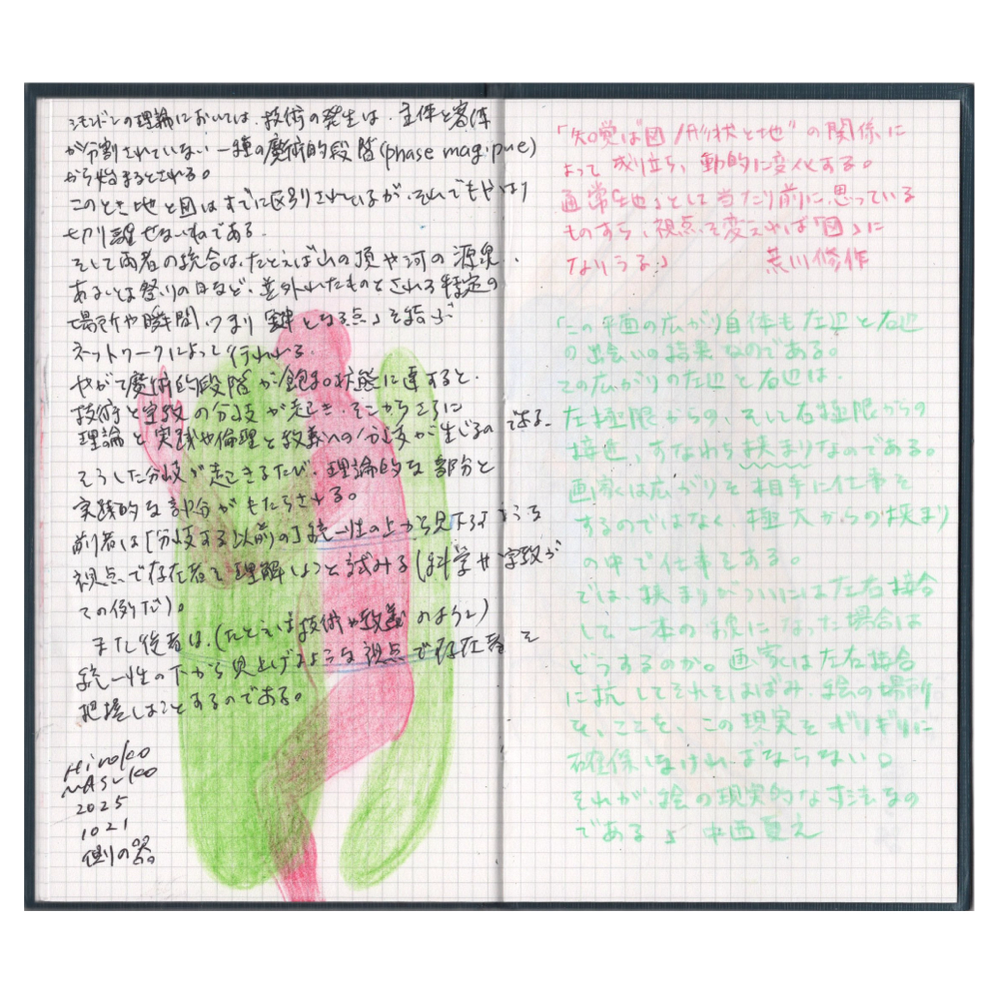 シモンドンの理論においては、技術の発生は、主体と客体
が分割されていない一種の魔術的段階(phase magique)
から始まるとされる。
このとき地と図はすでに区別されているが、それでもやはり
切り離せないものである。
そして両者の統合は、たとえば山の頂や河の源泉、
あるいは祭りの日など、並外れたものとされる特定の
場所や瞬間、つまり「鍵となる点」を結ぶ
ネットワークによって行われる。
やがて魔術的段階が飽和状態に達すると、
技術と宗教の分岐が起き、そこからさらに
理論と実践や倫理と教義への分岐が生じるのである。
そうした分岐が起きるたび、理論的な部分と
実践的な部分がもたらされる。
前者は[分岐する以前の]統一性の上から見下すような
視点で存在者を理解しようと試みる(科学や宗教が
その例だ)。
また後者は、(たとえば技術や教義のように)
統一性の下から見上げるような視点で存在者を
把握しようとするのである。
Hiroko
MASUKO
2025
1021
側の器。
「知覚は"図/形状と地"の関係に
よって成り立ち、動的に変化する。
通常「地」として当たり前に思っている
ものすら、視点を変えれば「図」に
なりうる」 荒川修作
「この平面の広がり自体も左辺と右辺
の出会いの結果なのである。
この広がりの左辺と右辺は
左極限からの、そして右極限からの
接近、すなわち挟まりなのである。
画家は広がりを相手に仕事を
するのではなく極大からの挟まり
の中で仕事をある。
では、挟まりがついには左右接合
して一本の線になった場合は
どうするのか。画家は左右接合
に抗してそれをはばみ、絵の場所
を、ここを、この現実をギリギリに
確保しなければならない。
それが、絵の現実的な寸法なの
である」 中西夏之